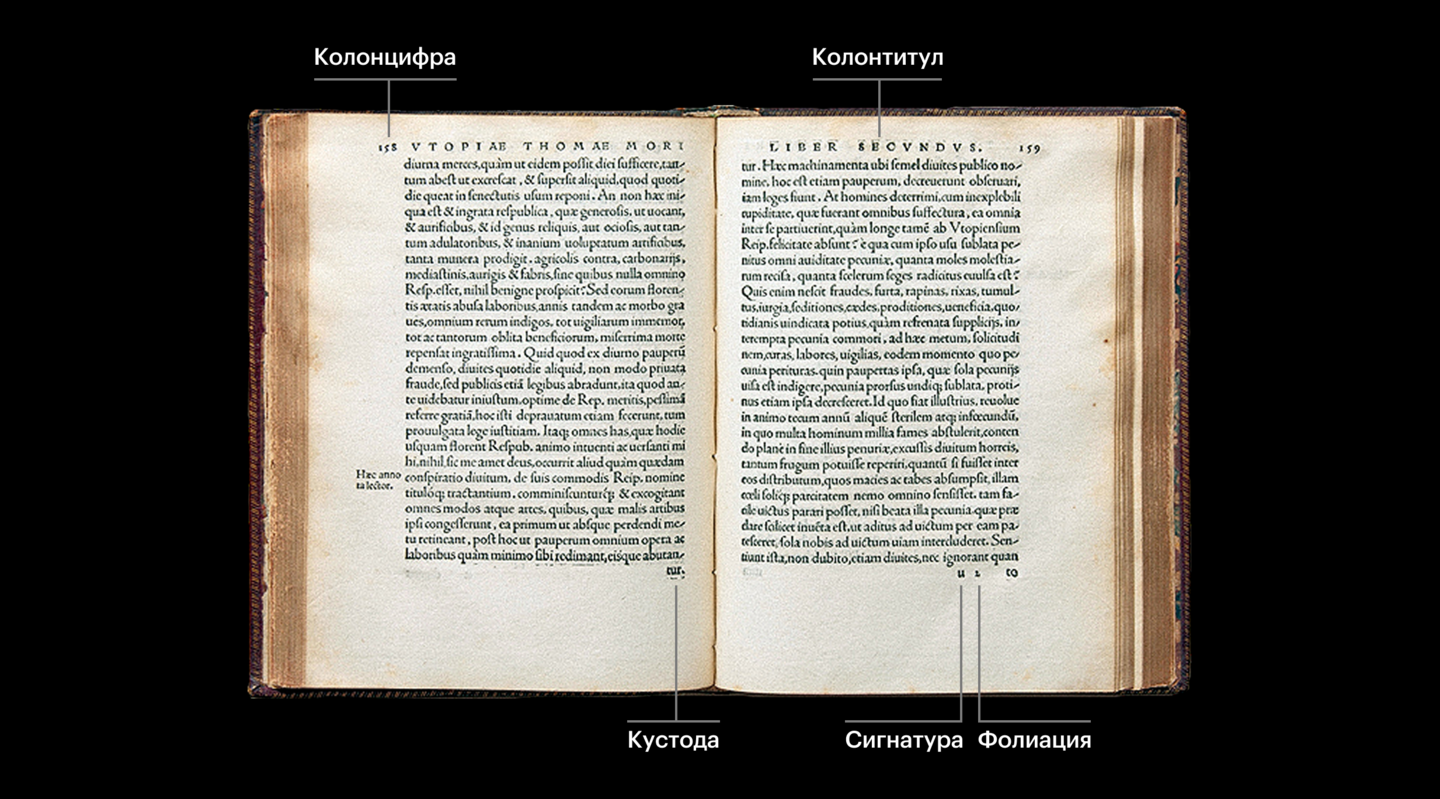 Колонцифра
Колонтитул
158 VTOPIAE THOMAE MORI
diurna merces, quàm ut eidem possit dici sufficere, tan-
tum abest ut excrescat, & supersit aliquid, quod quoti-
die queat in senectutis usum reponi. An non hæc ini-
qua est & ingrata respublica, quæ generosis, ut uocant,
& aurificibus, & id genus reliquis, aut ociosis, aut tan-
tum adulatoribus, & inanium uoluptatum artificibus,
tanta munera prodigit. agricolis contra, carbonarijs,
mediastinis, aurigis & fabris, sine quibus nulla omnino
Resp. esset, nihil benigne prospicit? Sed eorum floren-
tis ætatis abusa laboribus, annis tandem ac morbo gra
ues, omnium rerum indigos, tot uigiliarum immemor,
tot ac tantorum oblita beneficiorum, miserrima morte
repensat ingratissima. Quid quod ex diurno pauperũ
demenso, diuites quotidie aliquid, non modo priuata
fraude, sed publicis etiã legibus abradunt, ita quod an-
te uidebatur iniustum, optime de Rep. meritis, pessimã
referre gratiã, hoc isti deprauatum etiam fecerunt, tum
prouulgata lege iustitiam. Itaq; omnes has, quæ hodie
usquam florent Respub. animo intuenti ac uersanti mi
hi, nihil, sic me amet deus, occurrit aliud quàm quædam
Hæc anno
ta lector.
conspiratio diuitum, de suis commodis Reip. nomine
tituloq; tractantium. comminiscunturq; & excogitant
omnes modos atque artes, quibus, quæ malis artibus
ipsi congesserunt, ea primum ut absque perdendi me-
tu retineant, post hoc ut pauperum omnium opera ac
laboribus quàm minimo sibi redimant, eisque abutan-
tur.
LIBER SECVNDVS. 159
tur. Hæc machinamenta ubi semel diuites publico no-
mine, hoc est etiam pauperum, decreuerunt obseruari,
iam leges fiunt. At homines deterrimi, cum inexplebili
cupiditate, quæ fuerant omnibus suffectura, ea omnia
inter se partiuerint, quàm longe tamẽ ab Vtopiensium
Reip. felicitate absunt? è qua cum ipso usu sublata pe-
nitus omni auiditate pecuniæ, quanta moles molestia-
rum recisa, quanta scelerum seges radicitus euulsa est?
Quis enim nescit fraudes, furta, rapinas, rixas, tumul-
tus, iurgia, seditiones, cædes, proditiones, ueneficia, quo
tidianis uindicata potius, quàm refrenata supplicijs, in-
terempta pecunia commori, ad hæc metum, solicitudi
nem, curas, labores, uigilias, eodem momento quo pe-
cunia perituras. quin paupertas ipsa, quæ sola pecunijs
uisa est indigere, pecunia prorsus undiq; sublata, proti-
nus etiam ipsa decresceret. Id quo fiat illustrius, reuolue
in animo tecum annũ aliquẽ sterilem atq; infœcundũ,
in quo multa hominum millia fames abstulerit, conten
do planè in fine illius penuriæ, excussis diuitum horreis,
tantum frugum potuisse reperiri, quantũ si fuisset inter
eos distributum, quos macies ac tabes absumpsit, illam
cœli soliq; parcitatem nemo omnino sensisset. tam fa-
cile uictus parari posset, nisi beata illa pecunia. quæ præ
clare scilicet inuẽta est, ut aditus ad uictum per eam pa-
tesceret, sola nobis ad uictum uiam intercluderet. Sen-
tiunt ista, non dubito, etiam diuites, nec ignorant quan
u 2 to
Кустода
Сигнатура
Фолиация